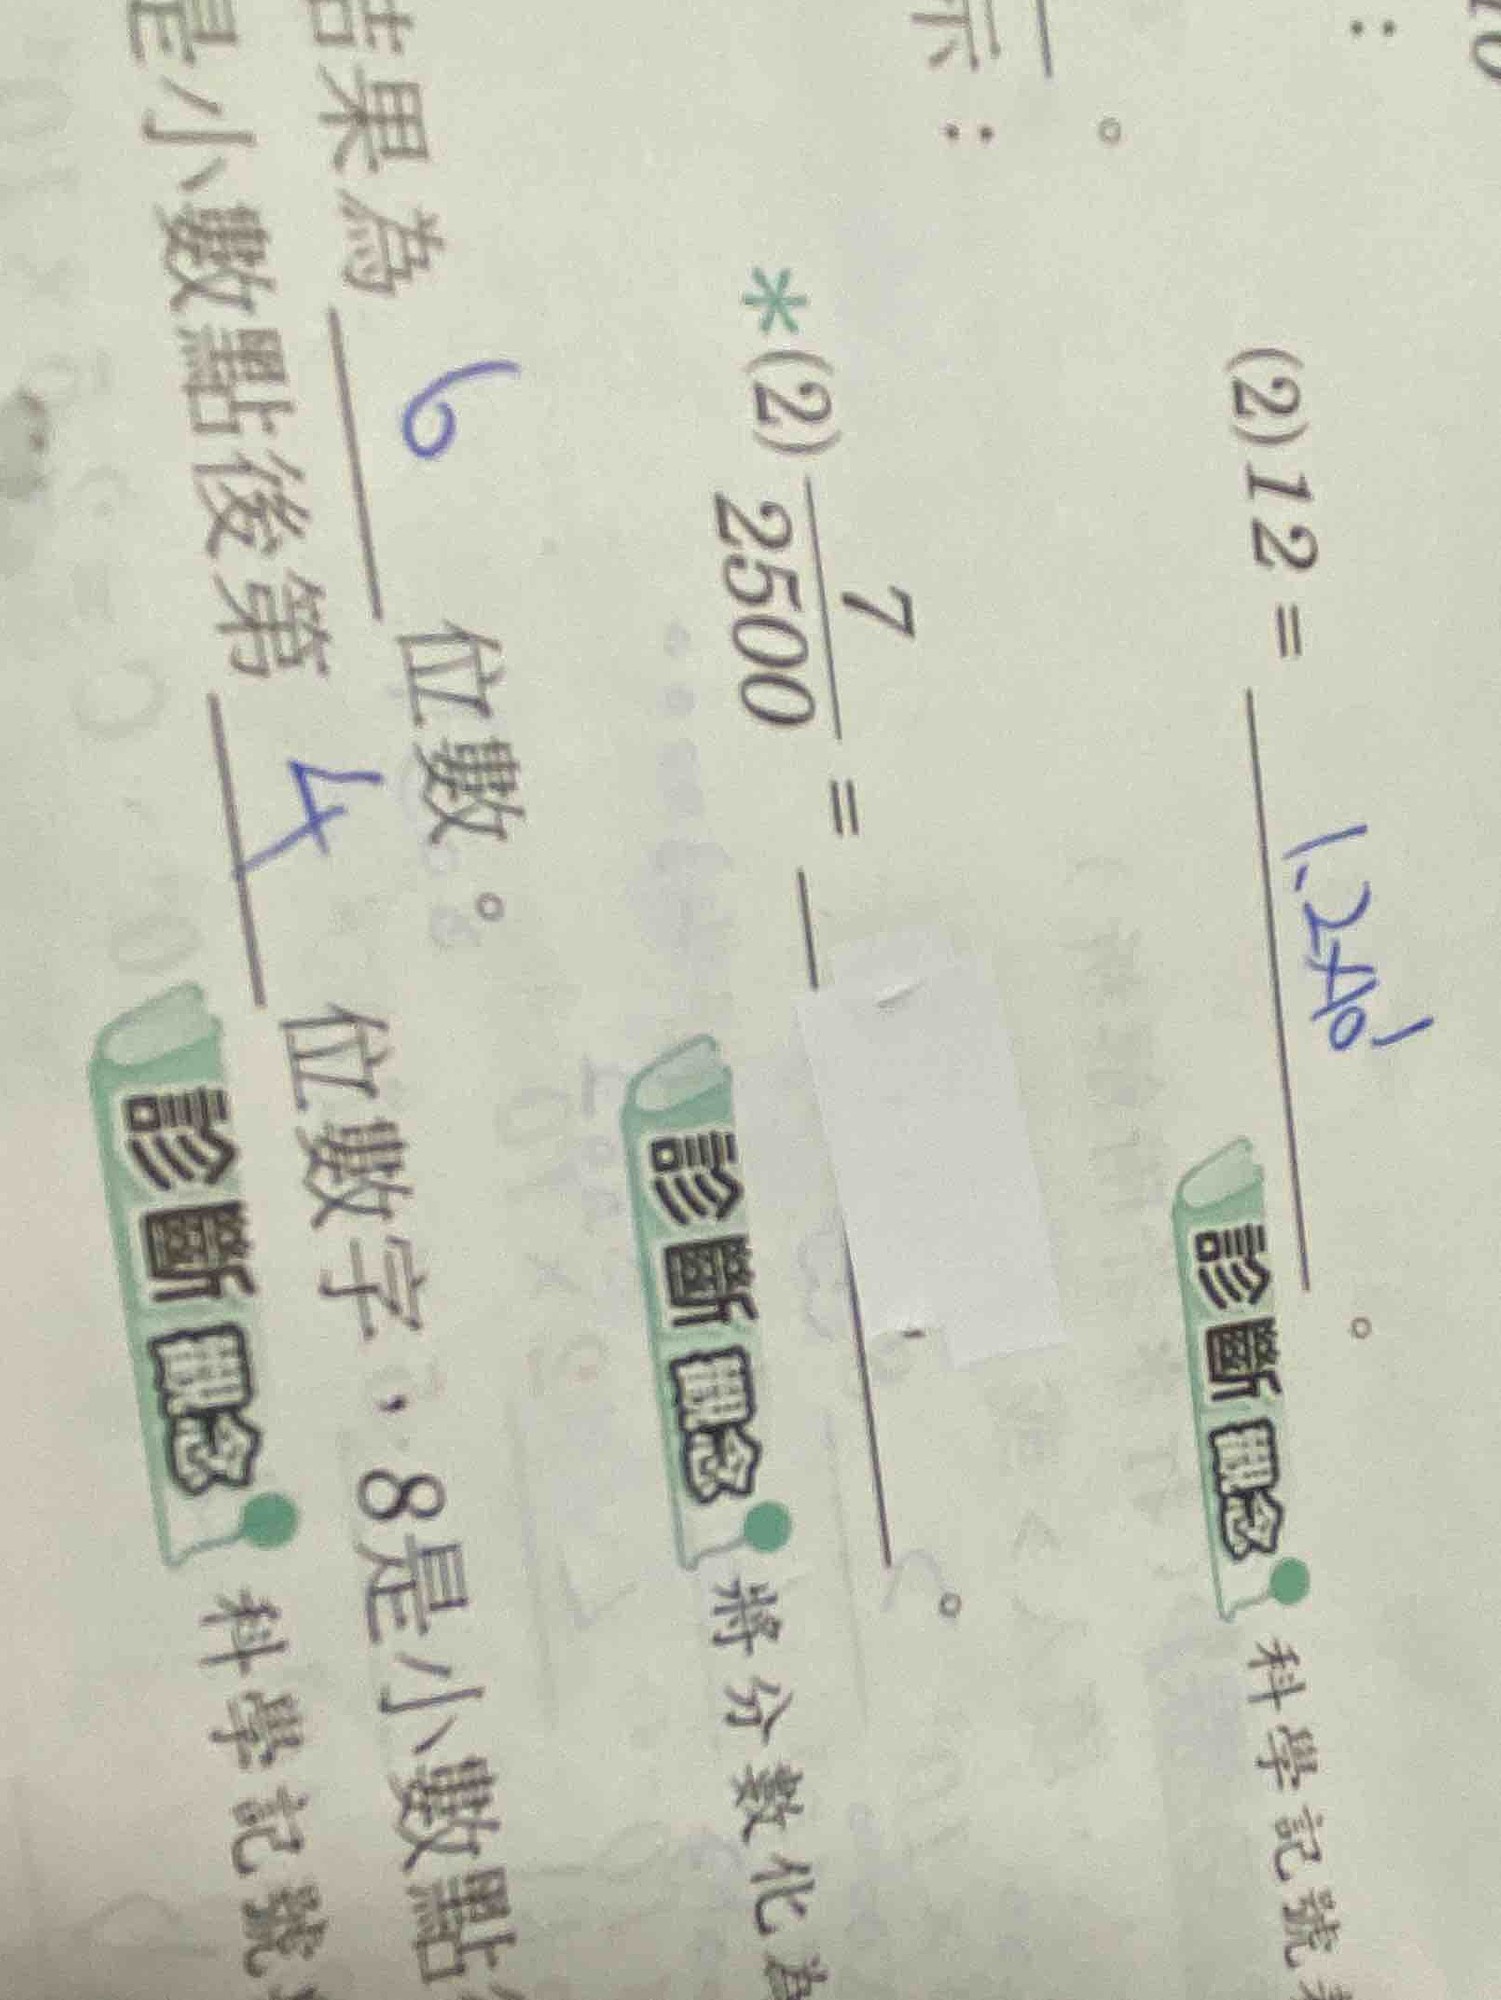 10
:
(2)12 = 1.2×10¹。
診斷觀念 科學記號
。
示:
*(2) 7/2500 = 。
診斷觀念 將分數化為
結果為 6 位數。
是小數點後第 4 位數字,8是小數點
診斷觀念 科學記號